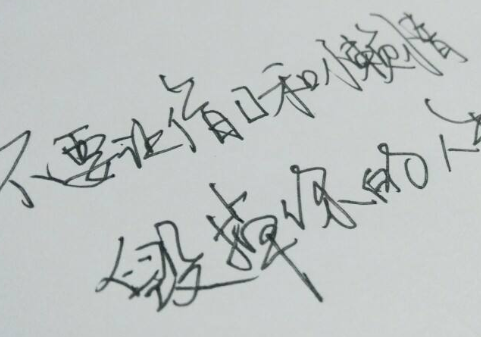 不要让借口和懒惰
毁掉你的人